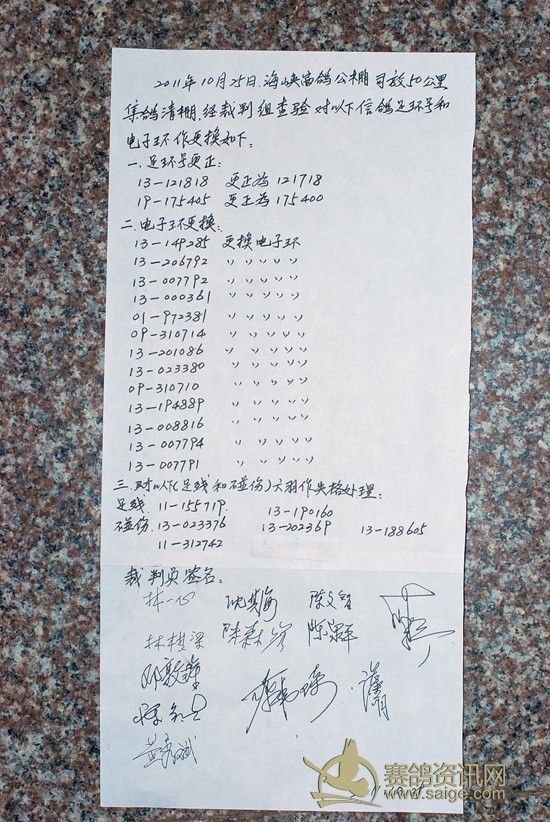 2011年10月25日.海峡富鸽公棚司放50公里
集鸽清棚.经裁判组查验对以下信鸽足环号和
电子环作更换如下。
一.足环号更正:
13-121818 更正为 121718
19-175405 更正为 175400
二.电子环更换:
13-149285 更换电子环
13-206792 〃 〃 〃 〃 〃
13-007792 〃 〃 〃 〃 〃
13-000361 〃 〃 〃 〃 〃
01-972381 〃 〃 〃 〃 〃
09-310714 〃 〃 〃 〃 〃
13-201086 〃 〃 〃 〃 〃
13-023380 〃 〃 〃 〃 〃
09-310710 〃 〃 〃 〃 〃
13-194889 〃 〃 〃 〃 〃
13-008816 〃 〃 〃 〃 〃
13-007794 〃 〃 〃 〃 〃
13-007791 〃 〃 〃 〃 〃
三.对以下(足线和碰伤)六羽作失格处理:
足线. 11-155719. 13-190160
碰伤.13-023376 13-202369 13-188605
11-312742
裁判员签名:
林一心 陈文智
赛鸽资讯网
www.saige.com